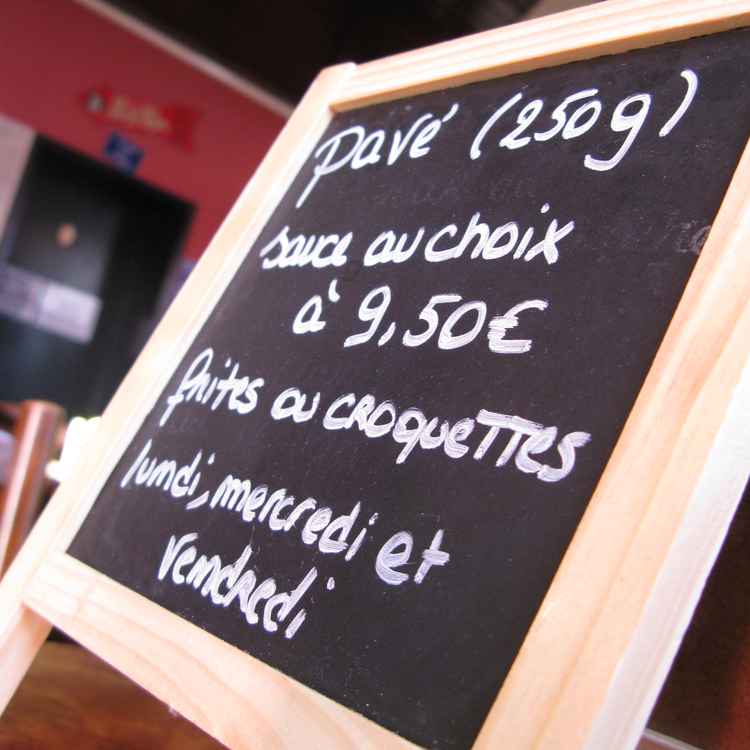 pavé (250g)
sauce au choix
à 9,50€
frites ou croquettes
lundi, mercredi et
vendredi